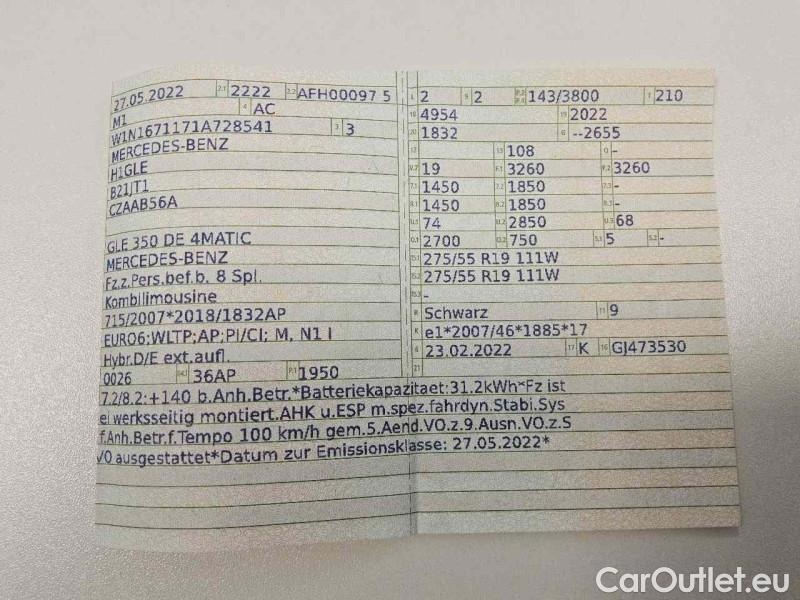 27.05.2022 2.1 2222 2.2 AFH00097 5
M1 4 AC
W1N1671171A728541 3 3
MERCEDES-BENZ
H1GLE
B21JT1
CZAAB56A
GLE 350 DE 4MATIC
MERCEDES-BENZ
Fz.z.Pers.bef.b. 8 Spl.
Kombilimousine
715/2007*2018/1832AP
EURO6;WLTP;AP;PI/CI; M, N1 I
Hybr.D/E ext.aufl.
0026 14.1 36AP P.1 1950
L 2 9 2 P.2 P.4 143/3800 T 210
18 4954 19 2022
20 1832 G --2655
12 13 108 Q -
V.7 19 F.1 3260 F.2 3260
7.1 1450 7.2 1850 7.3 -
8.1 1450 8.2 1850 8.3 -
U.1 74 U.2 2850 U.3 68
O.1 2700 O.2 750 S.1 5 S.2 -
15.1 275/55 R19 111W
15.2 275/55 R19 111W
15.3 -
R Schwarz 11 9
K e1*2007/46*1885*17
6 23.02.2022 17 K 16 GJ473530
21
7.2/8.2:+140 b.Anh.Betr.*Batteriekapazitaet:31.2kWh*Fz ist
werksseitig montiert.AHK u.ESP m.spez.fahrdyn.Stabi.Sys
f.Anh.Betr.f.Tempo 100 km/h gem.5.Aend.VO.z.9.Ausn.VO.z.S
VO ausgestattet*Datum zur Emissionsklasse: 27.05.2022*
CarOutlet.eu